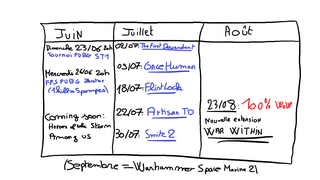 Juin
Dimanche 23/06 20h
Tournoi PUBG ST1
Mercredi 26/06 20h
FPS PUBG
Coming soon:
Heroes of the Storm
Among us
Juillet
02/07: The First Descendant
09/07: Once Human
18/07: Flintlock
22/07: Artisan TD
30/07: Smite 2
Août
23/08: 100% WOW
Nouvelle extension
WAR WITHIN
(Septembre = Warhammer Space Marine 2)